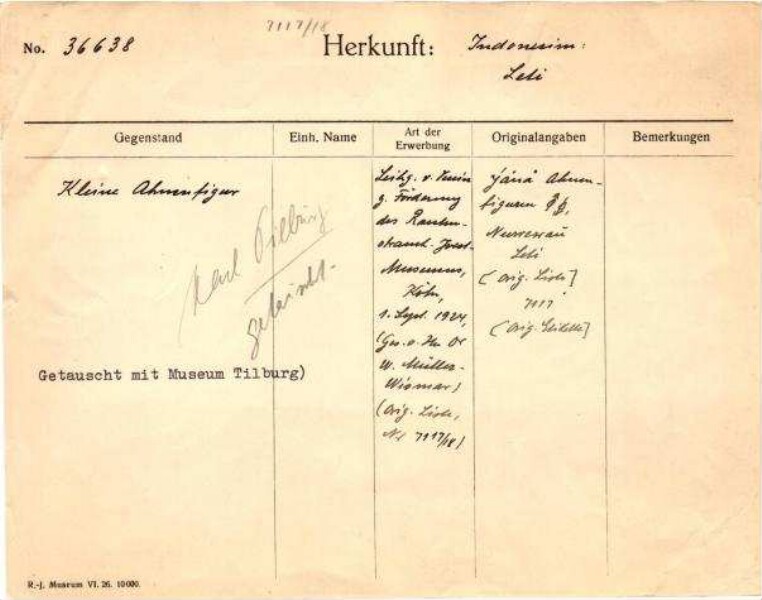 7117/18
No. 36638
Herkunft: Indonesien:
Leti
Gegenstand
Einh. Name
Art der
Erwerbung
Originalangaben
Bemerkungen
Kleine Ahnenfigur
nach Tilburg
getauscht.
Getauscht mit Museum Tilburg)
Leihg. v. Verein
z. Förderung
des Rauten-
strauch-Joest-
Museums,
Köln,
1. Sept. 1924,
(Ges. v. Hn Dr
W. Müller-
Wismar)
(Orig. Liste,
Nr 7117/18)
Ahnen-
figuren
Leti
[Orig. Liste]
7117
[Orig. Etikette]
R.-J. Museum VI. 26. 10000.